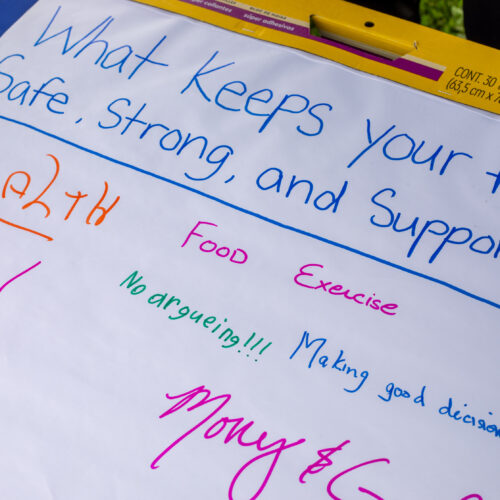 súper adhesivas
CONT. 30
What Keeps your
Safe, Strong, and Suppor
ALTH
Food Exercise
No argueing!!!
Making good decision
Mony &